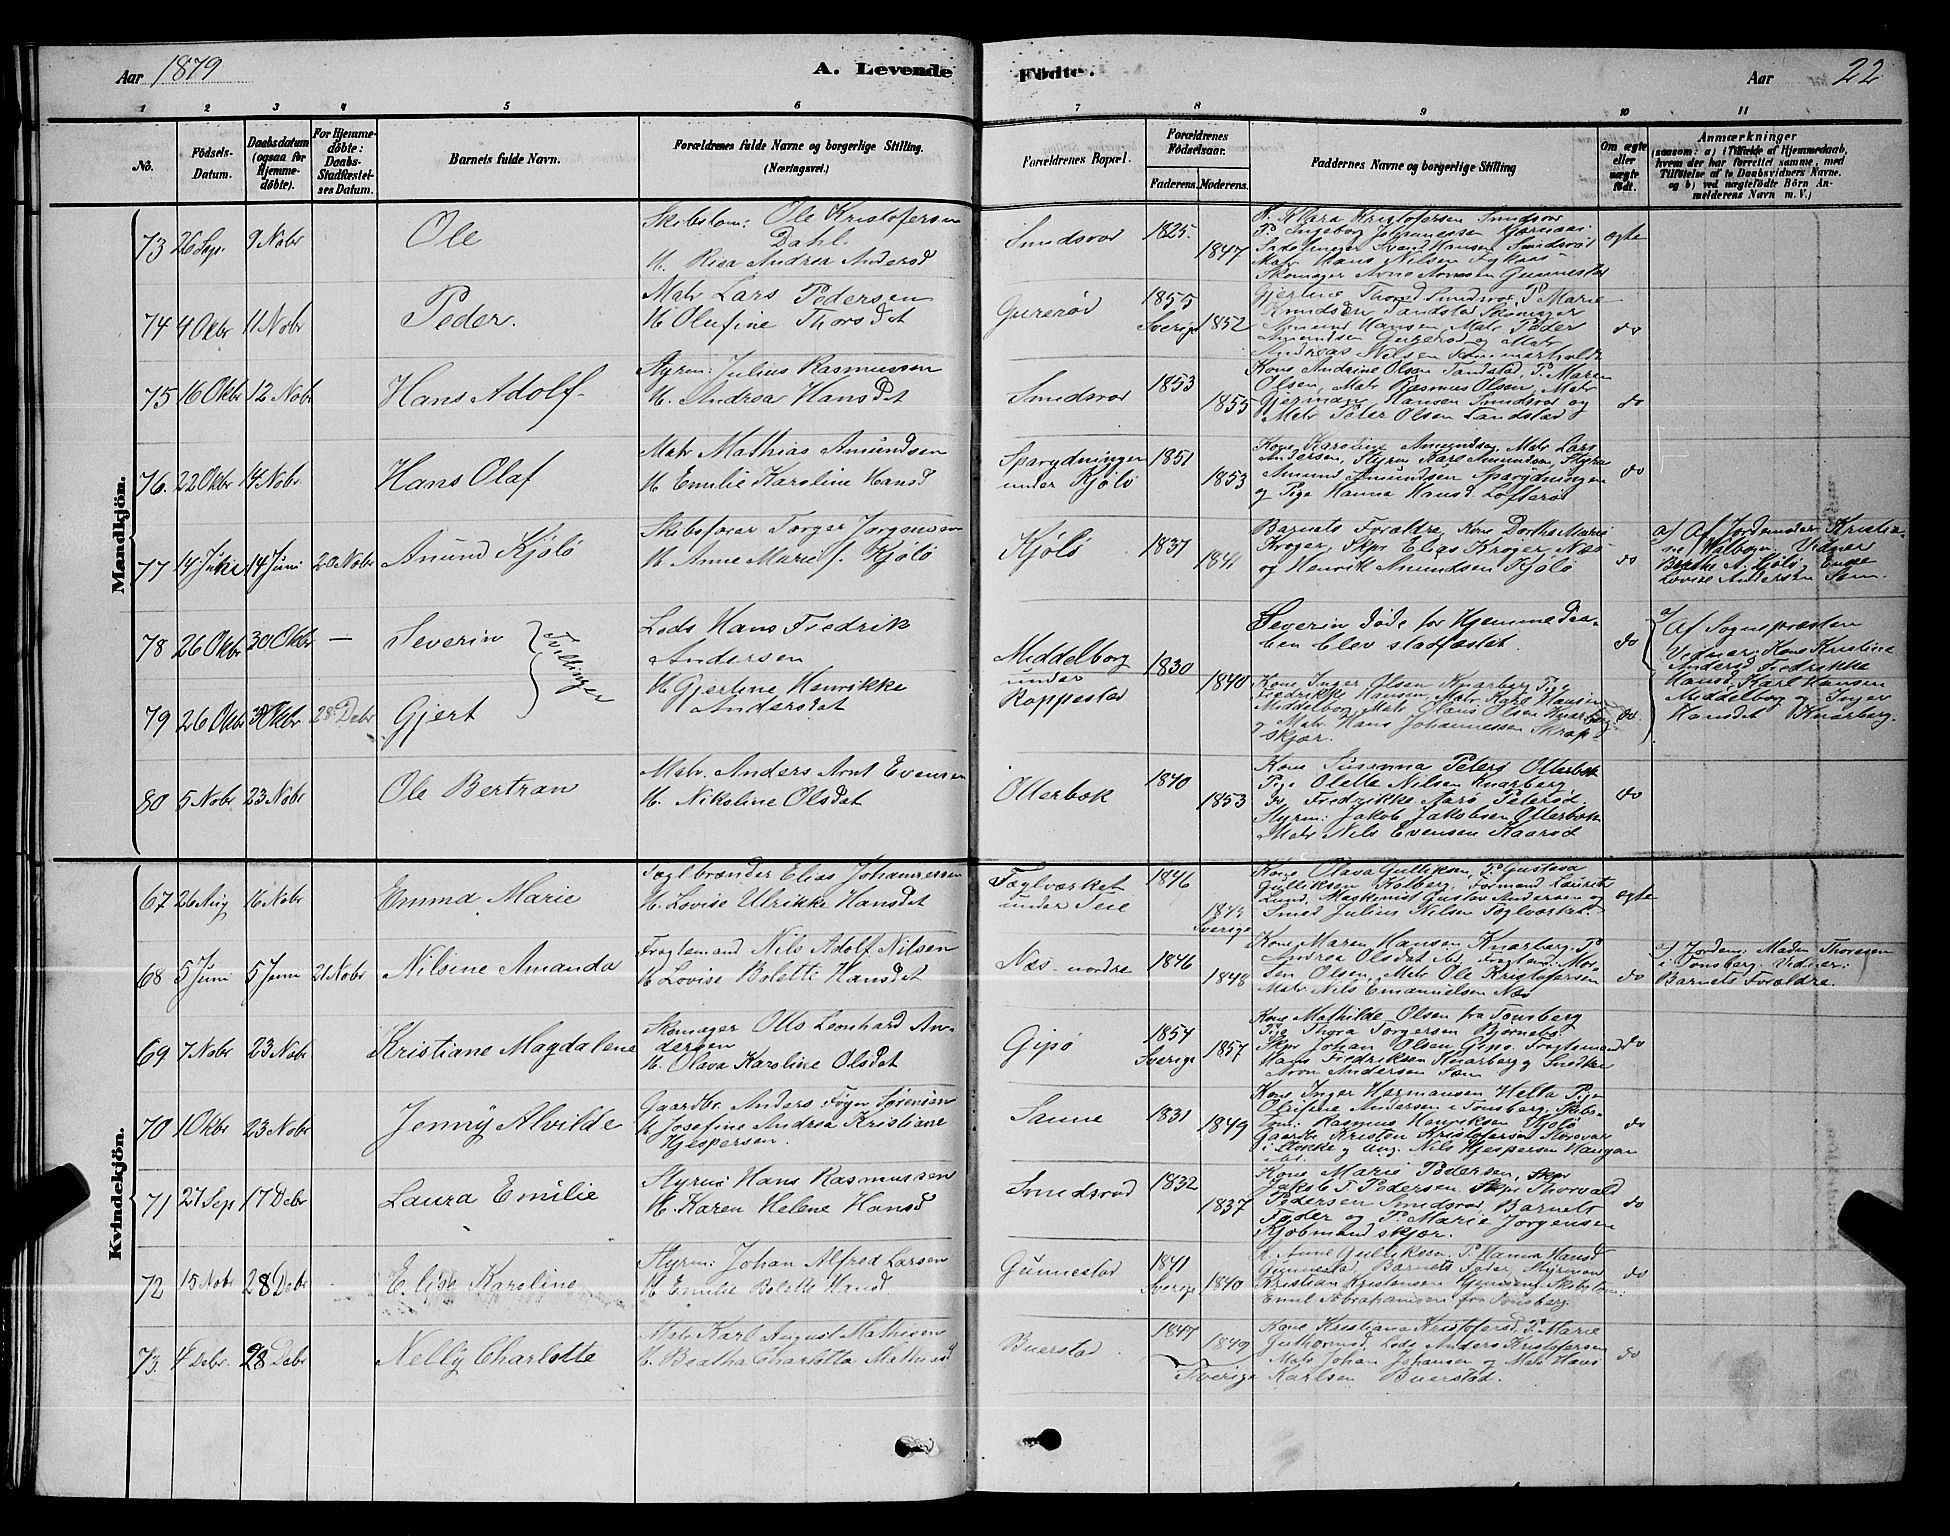 Aar 1879
A. Levende Födte.
Aar 22
1 2 3 4 5 6 7 8 9 10 11
No.
Födsels-Datum.
Daabsdatum (ogsaa for Hjemmedöbte).
For Hjemmedöbte: Daabs-Stadfæstelses Datum.
Barnets fulde Navn.
Forældrenes fulde Navne og borgerlige Stilling. (Næringsvei.)
Forældrenes Bopæl.
Forældrenes Födselsaar.
Faderens. Moderens.
Faddernes Navne og borgerlige Stilling
Om ægte eller uægte födt.
Anmærkninger
(saasom: a) i Tilfælde af Hjemmedaab, hvem der har forrettet samme, med Tilföielse af to Daabsvidners Navne. og b) ved uægtefödte Börn Anmelderens Navn m. V.)
Mandkjön.
73 26 Sep. 9 Nobr Ole
Skibstöm: Ole Kristofersen
Dahl.
H. Risa Andrea Andersd
Smidsrod 1825. 1847
Sand Hansen Smidsröd
Matr Hans Nilsen
Skomager Arne Arnesen Gunnestad
ægte
74 4 Okbr 11 Nobr Peder.
Matr Lars Pedersen
H Olufine Thorsdet
Gurerød 1855 Sverige 1852
Gjertine Thorsd Smidsrod, P. Marie
Knudsen Tandstad Skomager
Amund Hansen Matr Peder
Amundsen Gureröd og Matr
Andreas Nilsen Sommerholdt
do
75 16 Okbr 12 Nobr Hans Adolf
Styrm: Julius Rasmussen
H. Andrea Hansdet
Smidsrod 1853 1855
Kone Andrine Olsen Tandstad, P. Maren
Olsen, Matr Rasmus Olsen, Matr
Gjermann Hansen Smidsrod og
Matr Peter Olsen Tandstad
do
76. 22 Okbr 14 Nobr Hans Olaf
Matr Mathias Amundsen
H Emilie Karoline Hansd
Sparydningen under Kjölö 1851 1853
Kone Karoline Amundsen, Matr Lars
Andersen, Styrm Karl Amundsen, Styrm
Amund Amundsen Sparydningen
og Pige Hanna Hansd. Lofteröd
do
77 14 Juni 14 Juni 20 Nobr Amund Kjölö
Skibsförer Torger Jorgensen
H Anne Marie f. Kjölö
Kjölö 1837 1841
Barnets Forældre, Kone Dorthe Marie
Kroger, Skpr Elias Kroger Næs
og Henrik Amundsen Kjölö
do
a) Af Jordemoder Kristiane
Walbom, Vidner
Berthe A. Kjölö, Enke
Lovise Andersen Sem.
78 26 Okbr 30 Okbr — Severin
Tvillinger
Lods Hans Fredrik
Andersen
H Gjertine Henrikke
Andersdat
Middelborg under Rappestad 1830 1840
Severin döde för Hjemmedaaben
blev stadfæstet.
do
a) Af Sognepræsten
Vidner: Kone Kristine
Andersd Fredrikke
Hansd, Karl Hansen
Middelborg og Inger
Hansdet Knarberg.
79 26 Okbr 30 Okbr 28 Debr Gjert
Kone Inger Olsen Knarberg P.
Fredrikke Hansen, Matr Karl Hansen
Middelborg, Matr Hans Olsen Knarberg
og Matr Hans Johannessen Skrapskjær.
do
80 5 Nobr 23 Nobr Ole Bertran
Matr. Anders Arnt Evensen
H. Nikoline Olsdat
Ollerbok 1840 1853
Kone Susanna Peters Ollerbok
Pige Olette Nilsen Knarberg
do Fredrikke Aarö Peteröd.
Styrm: Jakob Jakobsen Ollerbok
Matr Nils Evensen Kaarod
do
Kvindekjön.
67 26 Aug 16 Nobr Emma Marie
Teglbrænder Elias Johannessen
H. Lovise Ulrikke Hansdet
Teglværket under Teie 1846 Sverige
Kone Olava Gulliksen, P. Gustava
Gulliksen Kolberg, Formand Laurits
Lund, Maskinist Gustav Andersen og
Smed Julius Nilsen Teglværket.
ægte
68 5 Juni 5 Juni 21 Nobr Nilsine Amanda
Fragtemand Nils Adolf Nilsen
H Lovise Bolette Hansdet
Næs nordre 1846 1848
Kone Maren Hansen Knarberg P.
Andrea Olsdat do, Fragtem.
Olsen, Matr Ole Kristofersen
Matr Nils Emanuelsen Næs
do
a) Jordem: Madm Thoresen
i Tonsberg. Vidner:
Barnets Forældre.
69 7 Nobr 23 Nobr Kristiane Magdalene
Skomager Otto Lenhard Andersen
H. Olava Karoline Olsdet
Gipö 1854 Sverige 1857
Kone Mathilde Olsen fra Tonsberg
Pige Thora Torgersen Bjornebo
Skpr Johan Olsen Gipö. Fragtemand
Hans Fredriksen Knarberg og Snedker
Aron Andersen Sem
do
70 1 Okbr 23 Nobr Jenny Alvilde
Gaardbr. Anders Föyn Sörensen
H Josefine Andrea Kristiane
Hjespersen.
Sanne 1831 1849
Kone Inger Hermansen Hella Pige
Olufine Andersen i Tonsberg, Skibstöm:
Rasmus Henriksen Kjölö
Gaardbr Kristen Kristofersen
i Stokke og Ung. Nils Hjespersen Haugan
do
71 27 Sep 17 Debr Laura Emilie
Styrm: Hans Rasmussen
H. Karen Helene Hansd
Smidsrod 1832 1837
Kone Marie Pedersen, Skpr
Jakob T. Pedersen. Skpr Thorvald
Pedersen Smidsrod, Barnets
Fader og P. Marie Jorgensen
Kjöbmandskjær.
do
72 15 Nobr 28 Debr Elise Karoline
Styrm: Johan Alfred Larsen
H Emilie Bolette Hansd
Gunnestad 1841 Sverige 1840
K. Anne Gulliksen P. Hanna Hansd
Gunnestad, Barnets Fader, Styrmand
Kristian Kristensen Skibstöm:
Emil Abrahamsen fra Tonsberg.
do
73. 4 Debr. 28 Debr Nelly Charlotte
Matr Karl August Mathisen
H. Beatha Charlotta Mathisd
Buerstad 1847 1849 Sverige
Kone Kristiana Kristofersd, P. Marie
Guthormsd, Lods Anders Kristofersen
Matr Johan Johansen og Matr Hans
Karlsen Buerstad.
do